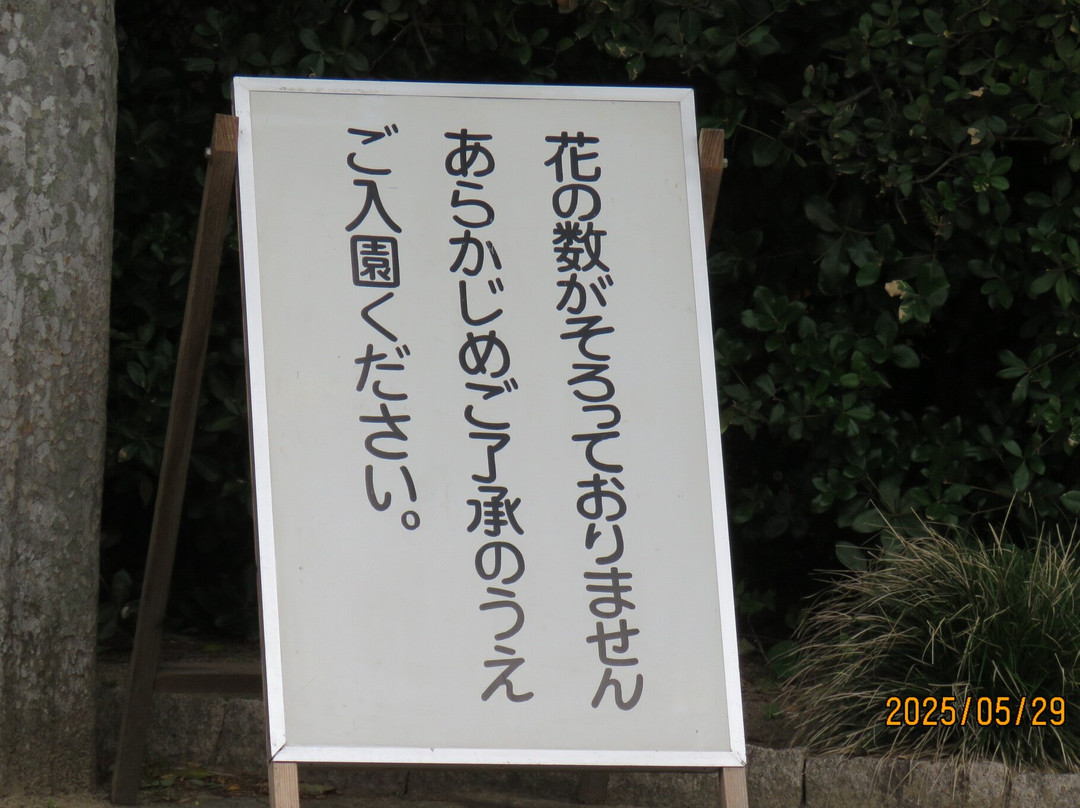 花の数がそろっておりません
あらかじめご了承のうえ
ご入園ください。
2025/05/29